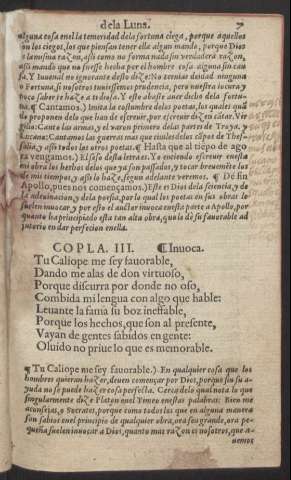 dela Luna. 7
alguna cosa enel la temeridad dela fortuna ciega, porque aquellos
son los ciegos, los que piensan tener ella algun mando, porque Dios
es la misma razon, assi como no forma nada sin verdadera razon,
assi mando que no fuesse hecha por el hombre cosa alguna sin cau
sa. Y Iuuenal no ignorante desto dize: No ternias deidad ninguna
o Fortuna, si nosotros tuuiessemos prudencia, pero nuestra locura y
poco saber te haze a ti diosa. Y esto abaste auer dicho dela fortu-
na. ¶ Cantamos.) Imita la costumbre delos poetas, los quales quã
do proponen delo que han de escreuir, por escreuir dizẽ cãtar. Ver
gilio: Canto las armas, y el varon primero delas partes de Troya. y
Lucano: Cantamos las guerras mas que ciuiles delos cãpos de Thes-
salia. y assi todos los otros poetas. ¶ Hasta que al tiẽpo de ago
ra vengamos.) El seso desta letra es. Yo entiendo escreuir enesta
mi obra las hechos delos que ya son passados, y tocar breuemẽte los
de mis tiempos, y assi lo haze, segun adelante veremos. ¶ Dé sin
Apollo, pues nos començamos.) Este es Dios dela sciencia, y de
la adeuinacion, y dela poesia, por lo qual los poetas en sus obras le
suelen inuocar, y por esso el auctor inuoca enesta parte a Apollo, por
quanto ha principiado esta tan alta obra, que le dé su fauorable ad
jutorio en dar perfecion enella.
COPLA. III. ¶ Inuoca.
Tu Caliope me sey fauorable,
Dando me alas de don virtuoso,
Porque discurra por donde no oso,
Combida mi lengua con algo que hable:
Leuante la fama su boz ineffable,
Porque los hechos, que son al presente,
Vayan de gentes sabidos en gente:
Oluido no priue lo que es memorable.
¶ Tu Caliope me sey fauorable.) En qualquier cosa que los
hombres quieran hazer, deuen començar por Dios, porque sin su a-
yuda no se puede hazer cosa perfecta. Cerca delo qual nota lo que
singularmente dize Platon enel Timeo enestas palabras: Bien me
aconsejas, o Socrates, porque como todos los que en alguna manera
son sabios enel principio de qualquier obra, ora sea grande, ora pe-
queña suelen inuocar a Dios, quanto mas razon es nosotros, que a-
uemos